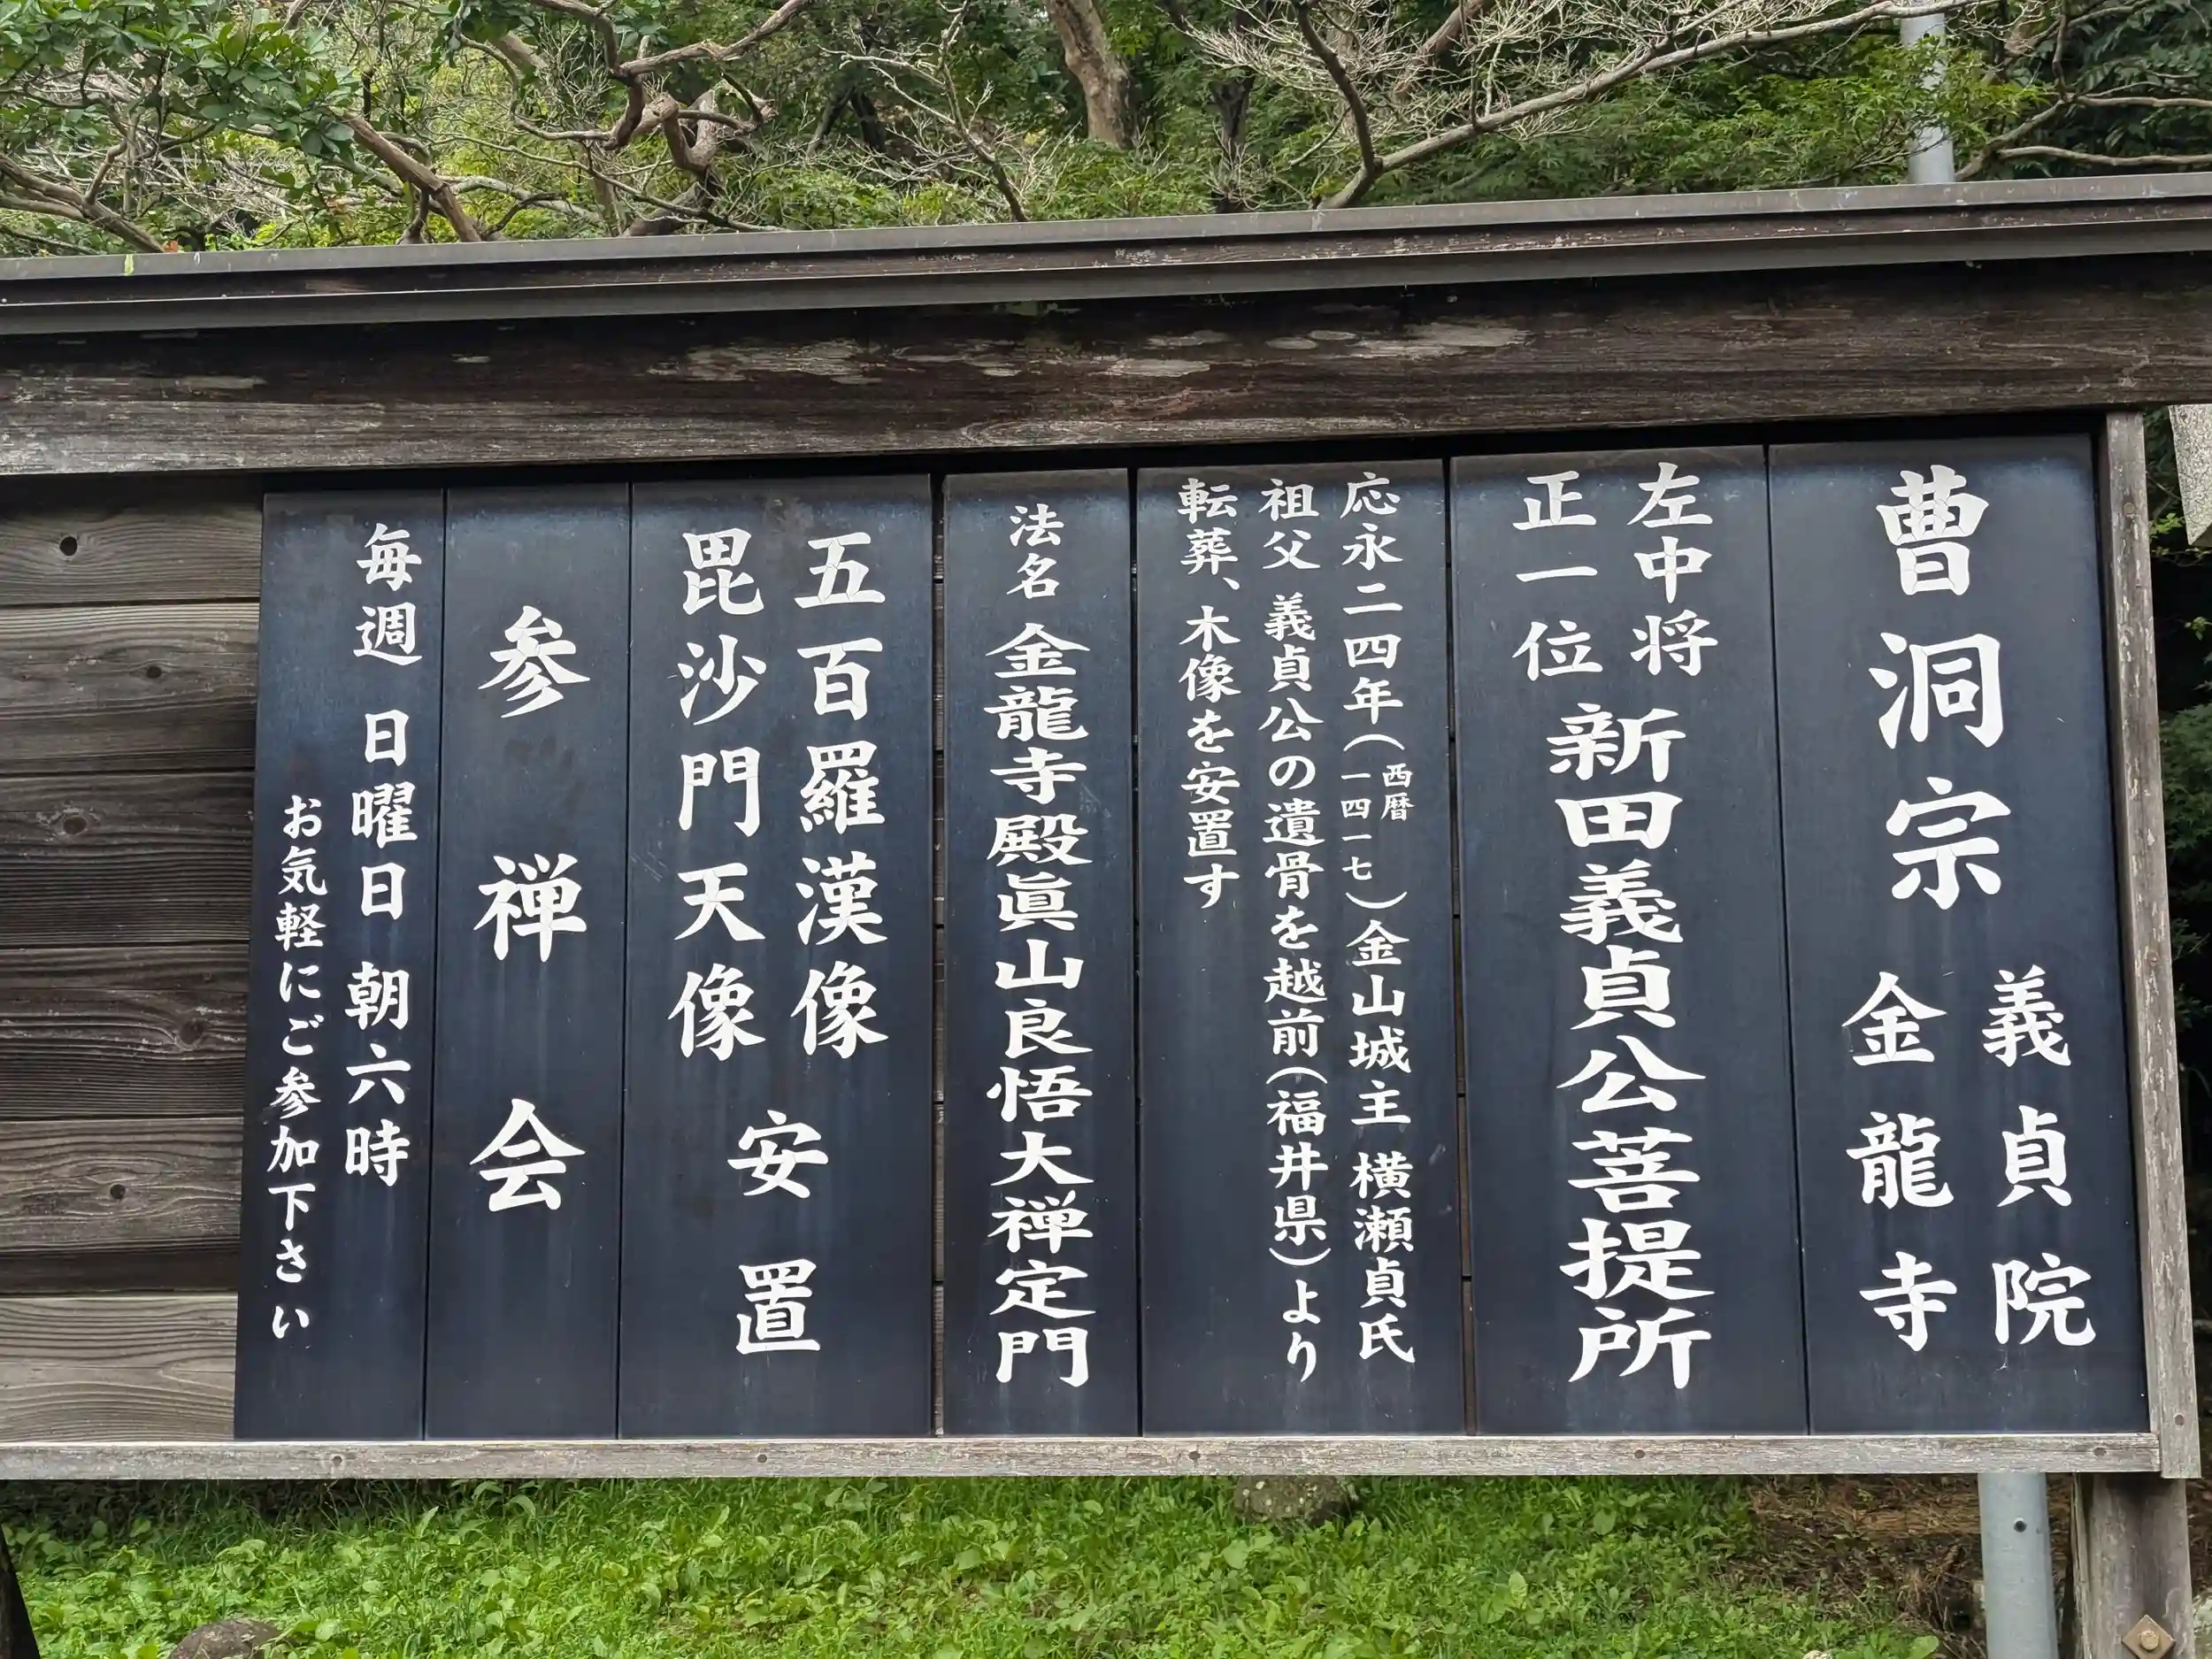 曹洞宗
義貞院
金龍寺
左中将
正一位
新田義貞公菩提所
応永二四年(西暦一四一七)金山城主 横瀬貞氏
祖父 義貞公の遺骨を越前(福井県)より
転葬、木像を安置す
法名 金龍寺殿眞山良悟大禅定門
五百羅漢像
毘沙門天像
安置
参禅会
毎週 日曜日 朝六時
お気軽にご参加下さい